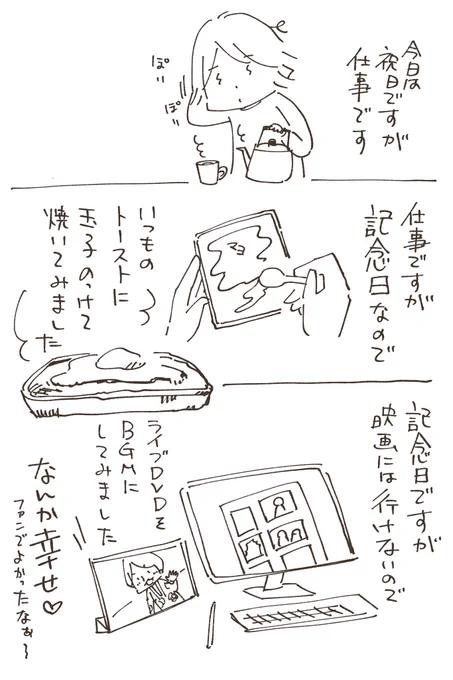 今日は
祝日ですが
仕事です
ぽい
ぽい
仕事ですが
記念日なので
いつもの
トーストに
玉子のっけて
焼いてみました
記念日ですが
映画には行けないので
ライブDVDを
BGMに
してみました
なんか幸せ♡
ファンでよかったなぁ〜